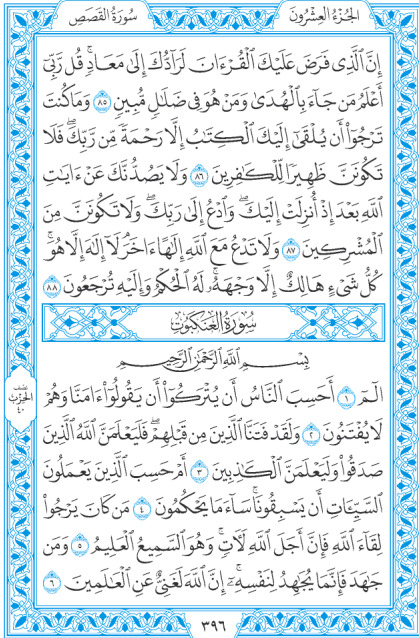 الجزء العشرون
سورة القصص
إِنَّ ٱلَّذِى فَرَضَ عَلَيْكَ ٱلْقُرْءَانَ لَرَآدُّكَ إِلَىٰ مَعَادٍ ۚ قُل رَّبِّىٓ
أَعْلَمُ مَن جَآءَ بِٱلْهُدَىٰ وَمَنْ هُوَ فِى ضَلَٰلٍ مُّبِينٍ ٨٥ وَمَا كُنتَ
تَرْجُوٓا۟ أَن يُلْقَىٰٓ إِلَيْكَ ٱلْكِتَٰبُ إِلَّا رَحْمَةً مِّن رَّبِّكَ ۖ فَلَا
تَكُونَنَّ ظَهِيرًا لِّلْكَٰفِرِينَ ٨٦ وَلَا يَصُدُّنَّكَ عَنْ ءَايَٰتِ
ٱللَّهِ بَعْدَ إِذْ أُنزِلَتْ إِلَيْكَ ۖ وَٱدْعُ إِلَىٰ رَبِّكَ ۖ وَلَا تَكُونَنَّ مِنَ
ٱلْمُشْرِكِينَ ٨٧ وَلَا تَدْعُ مَعَ ٱللَّهِ إِلَٰهًا ءَاخَرَ ۘ لَآ إِلَٰهَ إِلَّا هُوَ ۚ
كُلُّ شَىْءٍ هَالِكٌ إِلَّا وَجْهَهُۥ ۚ لَهُ ٱلْحُكْمُ وَإِلَيْهِ تُرْجَعُونَ ٨٨
سورة العنكبوت
بِسْمِ ٱللَّهِ ٱلرَّحْمَٰنِ ٱلرَّحِيمِ
الٓمٓ ١ أَحَسِبَ ٱلنَّاسُ أَن يُتْرَكُوٓا۟ أَن يَقُولُوٓا۟ ءَامَنَّا وَهُمْ
لَا يُفْتَنُونَ ٢ وَلَقَدْ فَتَنَّا ٱلَّذِينَ مِن قَبْلِهِمْ ۖ فَلَيَعْلَمَنَّ ٱللَّهُ ٱلَّذِينَ
صَدَقُوا۟ وَلَيَعْلَمَنَّ ٱلْكَٰذِبِينَ ٣ أَمْ حَسِبَ ٱلَّذِينَ يَعْمَلُونَ
ٱلسَّيِّـَٔاتِ أَن يَسْبِقُونَا ۚ سَآءَ مَا يَحْكُمُونَ ٤ مَن كَانَ يَرْجُوا۟
لِقَآءَ ٱللَّهِ فَإِنَّ أَجَلَ ٱللَّهِ لَـَٔاتٍ ۚ وَهُوَ ٱلسَّمِيعُ ٱلْعَلِيمُ ٥ وَمَن
جَٰهَدَ فَإِنَّمَا يُجَٰهِدُ لِنَفْسِهِۦٓ ۚ إِنَّ ٱللَّهَ لَغَنِىٌّ عَنِ ٱلْعَٰلَمِينَ ٦
الحزب
٤٠
٣٩٦